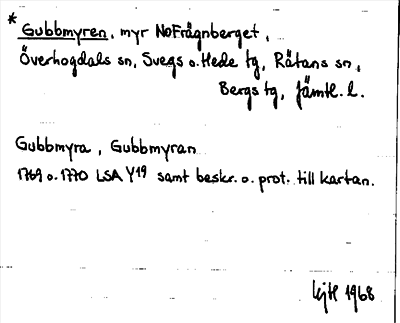 * Gubbmyren, myr NoFrägnberget,
Överhogdals sn, Svegs o. Hede tg, Rätans sn,
Bergs tg, Jämtl. l.
Gubbmyra, Gubbmyran
1769 o. 1770 LSA Y19 samt beskr. o. prot. till kartan.
1968